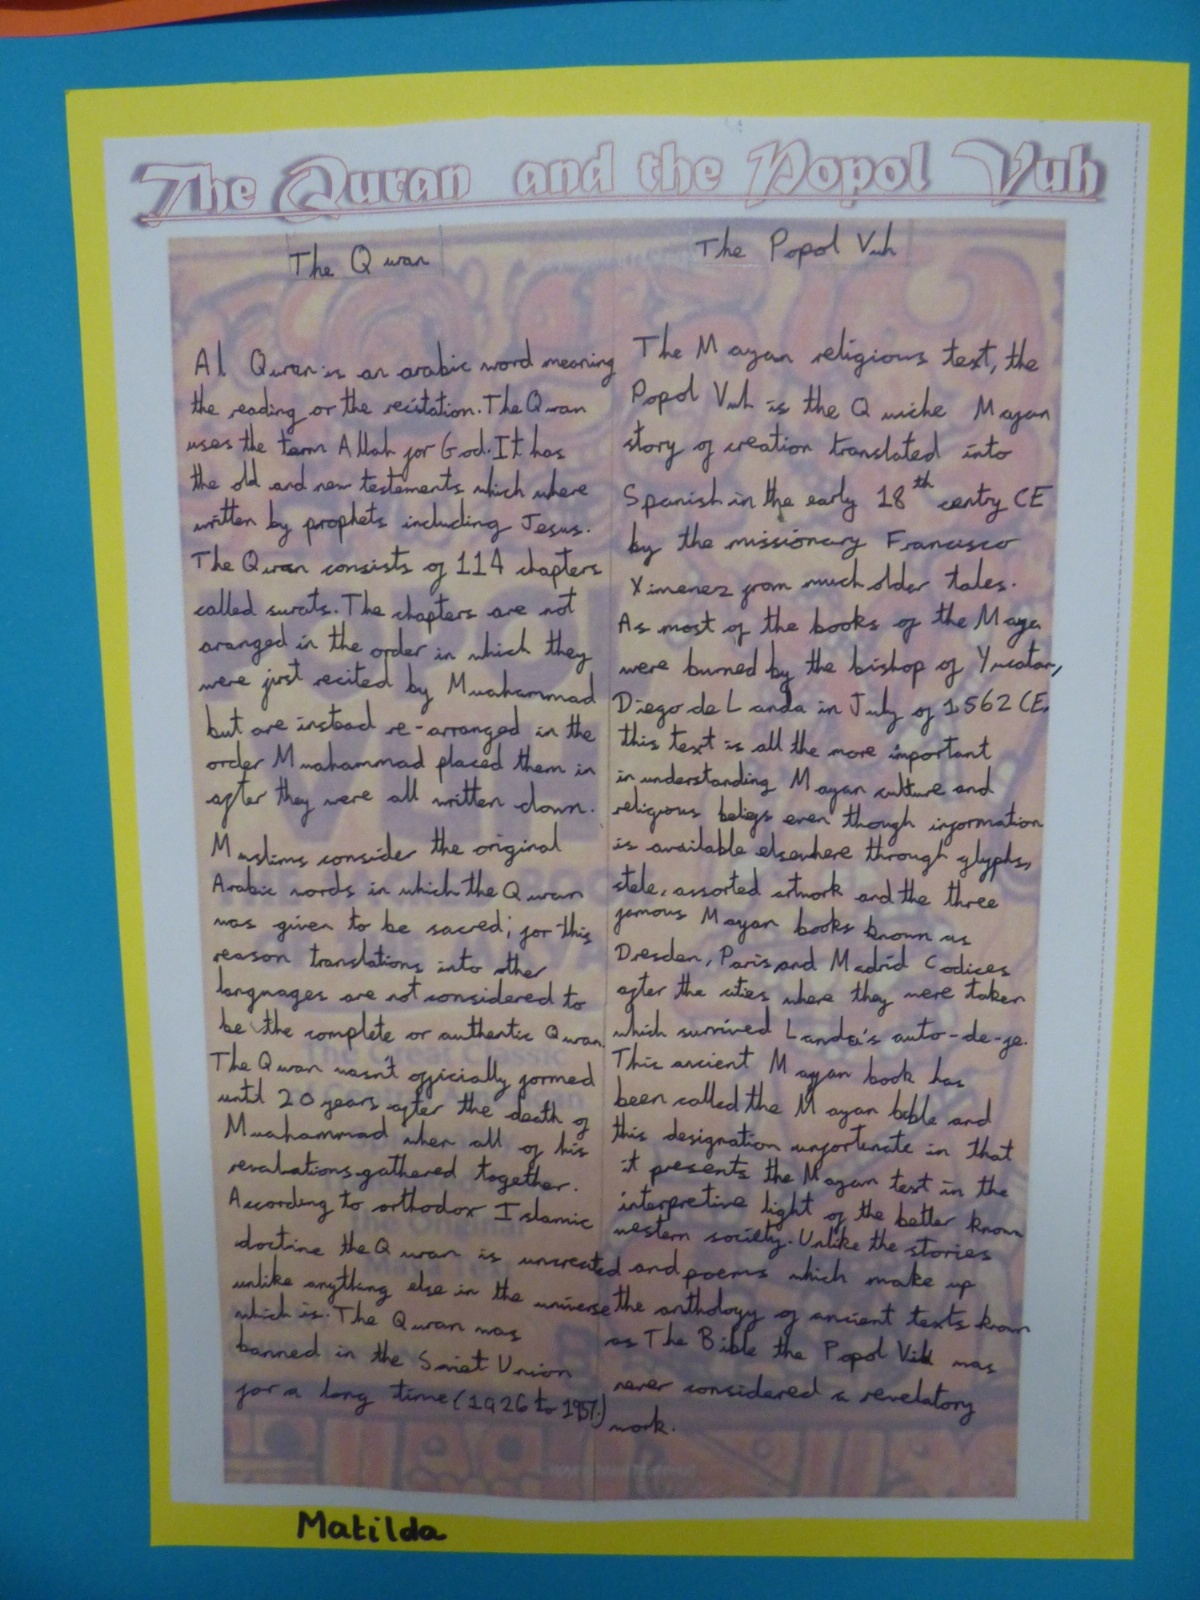 The Quran and the Popol Vuh
The Quran
Al Quran is an arabic word meaning
the reading or the recitation. The Quran
uses the term Allah for God. It has
the old and new testements which where
written by prophets including Jesus.
The Quran consists of 114 chapters
called surats. The chapters are not
aranged in the order in which they
were first recited by Muahammad
but are instead re-arranged in the
order Muahammad placed them in
after they were all written down.
Muslims consider the original
Arabic words in which the Quran
was given to be sacred; for this
reason translations into other
languages are not considered to
be the complete or authentic Quran.
The Quran wasn't officially formed
until 20 years after the death of
Muahammad when all of his
revalations gathered together.
According to orthodox Islamic
doctine the Quran is uncreated
unlike anything else in the universe
which is. The Quran was
banned in the Soviet Union
for a long time (1926 to 1957.)
The Popol Vuh
The Mayan religious text, the
Popol Vuh is the Quiche Mayan
story of creation translated into
Spanish in the early 18th centry CE
by the missionary Francisco
Ximenez from much older tales.
As most of the books of the Maya
were burned by the bishop of Yucatan,
Diego de Landa in July of 1562 CE,
this text is all the more important
in understanding Mayan culture and
religious beliefs even though information
is available elsewhere through glyphs,
stele, assorted artwork and the three
famous Mayan books known as
Dresden, Paris, and Madrid Codices
after the cities where they were taken
which survived Landa's auto-de-fe.
This ancient Mayan book has
been called the Mayan bible and
this designation unfortunate in that
it presents the Mayan text in the
interpretive light of the better known
western society. Unlike the stories
and poems which make up
the anthology of ancient texts known
as The Bible the Popol Vuh was
never considered a revelatory
work.
Matilda